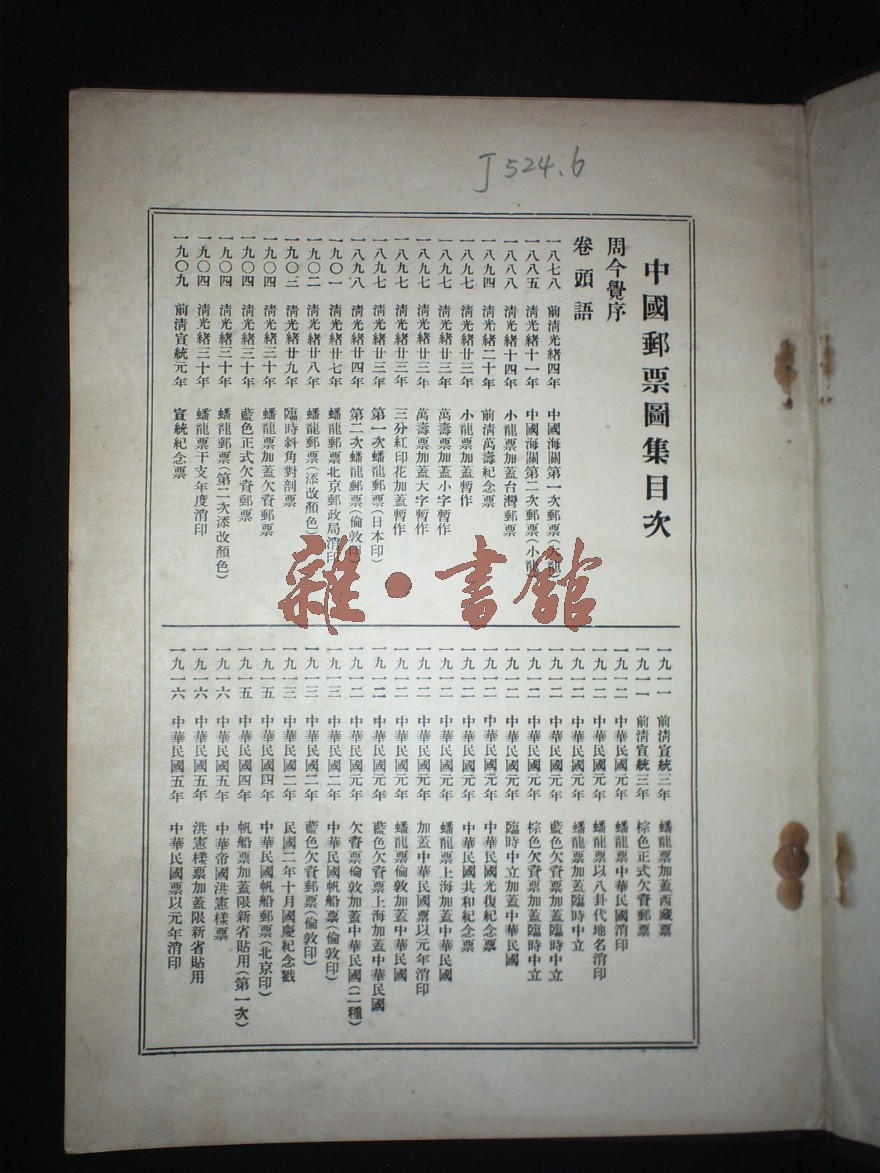 J524.6
中國郵票圖集目次
周今覺序
卷頭語
一八七八 前清光緒四年 中國海關第一次郵票(大龍)
一八八五 清光緒十一年 中國海關第二次郵票(小龍)
一八八八 清光緒十四年 小龍票加蓋台灣郵票
一八九四 清光緒二十年 前清萬壽紀念票
一八九七 清光緒廿三年 小龍票加蓋暫作
一八九七 清光緒廿三年 萬壽票加蓋小字暫作
一八九七 清光緒廿三年 萬壽票加蓋大字暫作
一八九七 清光緒廿三年 三分紅印花加蓋暫作
一八九七 清光緒廿三年 第一次蟠龍郵票(日本印)
一八九八 清光緒廿四年 第二次蟠龍郵票(倫敦印)
一九〇一 清光緒廿七年 蟠龍郵票北京郵政局消印
一九〇二 清光緒廿八年 蟠龍郵票(添改顏色)
一九〇三 清光緒廿九年 臨時斜角對剖票
一九〇四 清光緒三十年 蟠龍票加蓋欠資郵票
一九〇四 清光緒三十年 藍色正式欠資郵票
一九〇四 清光緒三十年 蟠龍郵票(第二次添改顏色)
一九〇四 清光緒三十年 蟠龍票干支年度消印
一九〇九 前清宣統元年 宣統紀念票
一九一一 前清宣統三年 蟠龍票加蓋西藏票
一九一一 前清宣統三年 棕色正式欠資郵票
一九一二 中華民國元年 蟠龍票中華民國消印
一九一二 中華民國元年 蟠龍票以八卦代地名消印
一九一二 中華民國元年 蟠龍票加蓋臨時中立
一九一二 中華民國元年 藍色欠資票加蓋臨時中立
一九一二 中華民國元年 棕色欠資票加蓋臨時中立
一九一二 中華民國元年 臨時中立加蓋中華民國
一九一二 中華民國元年 中華民國光復紀念票
一九一二 中華民國元年 中華民國共和紀念票
一九一二 中華民國元年 蟠龍票上海加蓋中華民國
一九一二 中華民國元年 加蓋中華民國票以元年消印
一九一二 中華民國元年 蟠龍票倫敦加蓋中華民國
一九一二 中華民國元年 藍色欠資票上海加蓋中華民國
一九一二 中華民國元年 欠資票倫敦加蓋中華民國(二種)
一九一三 中華民國二年 中華民國帆船票(倫敦印)
一九一三 中華民國二年 藍色欠資郵票(倫敦印)
一九一三 中華民國二年 民國二年十月國慶紀念戳
一九一五 中華民國四年 中華民國帆船郵票(北京印)
一九一五 中華民國四年 帆船票加蓋限新省貼用(第一次)
一九一六 中華民國五年 中華帝國洪憲樣票
一九一六 中華民國五年 洪憲樣票加蓋限新省貼用
一九一六 中華民國五年 中華民國票以元年消印
雜·書館